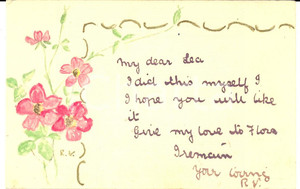 my dear Lea
I did this myself I
I hope you will like
it
Give my love to Flora
I remain
Your loving
R.V.
R.V.